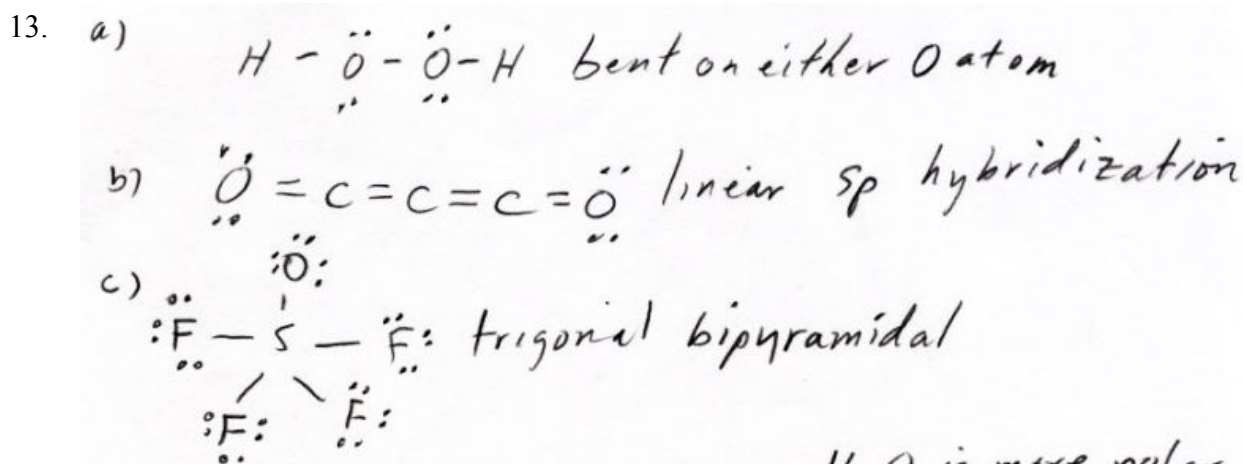 13. a)
H - Ö - Ö - H bent on either O atom
b) Ö = C = C = C = Ö linear sp hybridization
:Ö:
c)
:F - S - F: trigonal bipyramidal
:F: F:
H2O is more polar